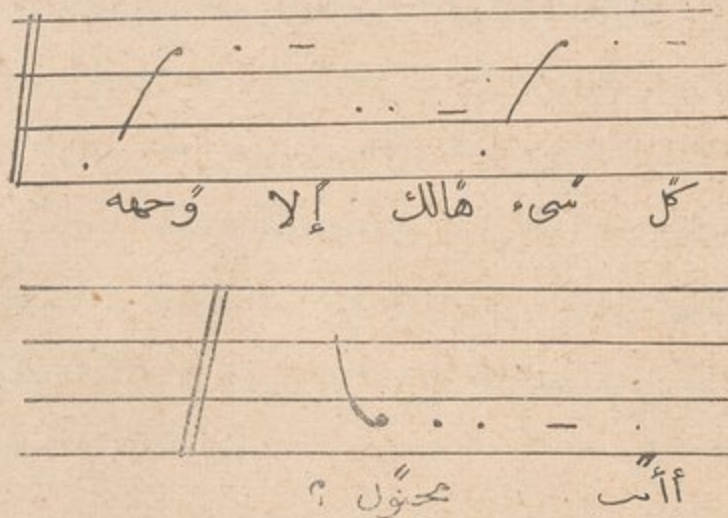 كل شىء هالك إلا وجهه
أأنت مجنون ؟